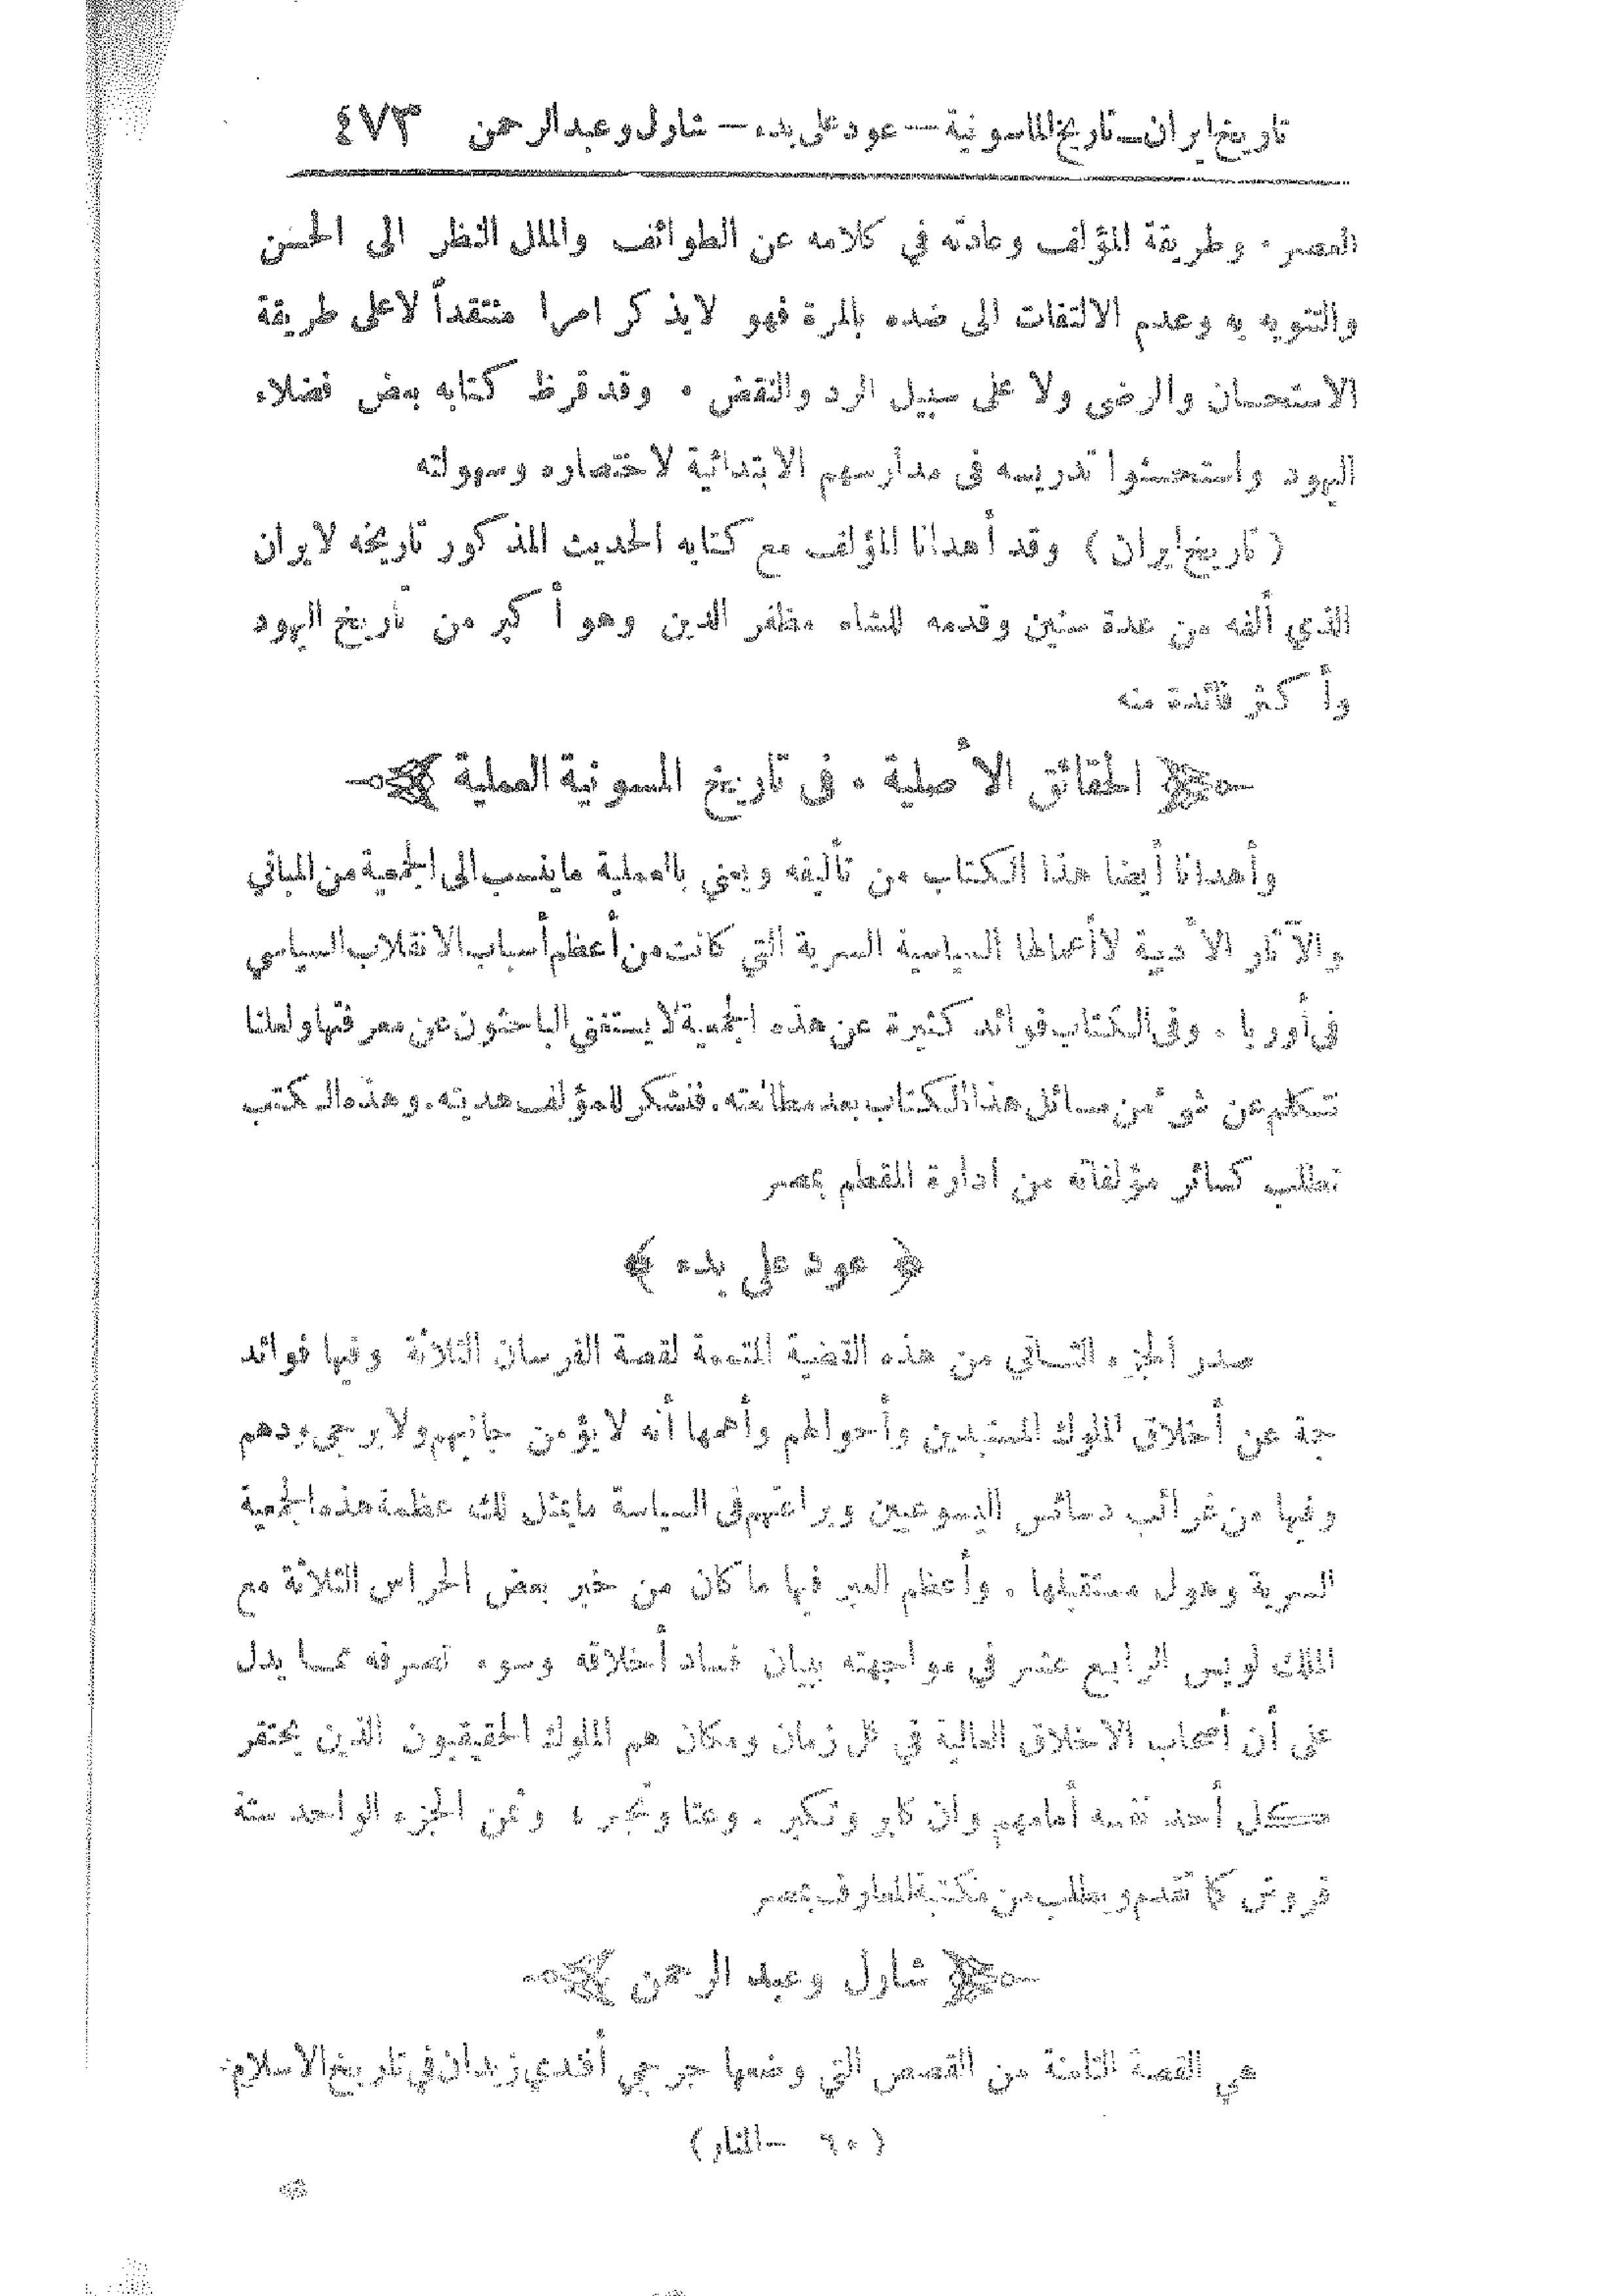 تاريخ ايران — تاريخ الماسونية — عود على بدء — شارل وعبد الرحمن ٤٧٣
العصر . وطريقة المؤلف وعادته في كلامه عن الطوائف والملل النظر الى الحسن
والتنويه به وعدم الالتفات الى ضده بالمرة فهو لايذكر امرا منتقداً لاعلى طريقة
الاستحسان والرضى ولا على سبيل الرد والنقض . وقد قرظ كتابه بعض فضلاء
اليهود واستحسنوا تدريسه فى مدارسهم الابتدائية لاختصاره وسهولته
( تاريخ ايران ) وقد أهدانا المؤلف مع كتابه الحديث المذكور تاريخه لايران
الذي ألفه من عدة سنين وقدمه للشاه مظفر الدين وهو أكبر من تاريخ اليهود
وأكثر فائدة منه
الحقائق الأصلية . فى تاريخ المسونية العملية
وأهدانا أيضا هذا الكتاب من تأليفه ويعني بالعملية ماينسب الى الجمعية من المباني
والآثار الأدبية لاأعمالها السياسية السرية التي كانت من أعظم أسباب الانقلاب السياسي
فى أوربا . وفى الكتاب فوائد كثيرة عن هذه الجمعية لايستغني الباحثون عن معرفتها ولعلنا
نتكلم عن شئ من مسائل هذا الكتاب بعد مطالعته . فنشكر للمؤلف هديته . وهذه الكتب
تطلب كسائر مؤلفاته من ادارة المقطم بمصر
﴿ عود على بدء ﴾
صدر الجزء الثاني من هذه القصة المتممة لقصة الفرسان الثلاثة وفيها فوائد
جمة عن أخلاق الملوك المستبدين وأحوالهم وأهمها أنه لايؤمن جانبهم ولا يرجى ودهم
وفيها من غرائب دسائس اليسوعيين وبراعتهم فى السياسة مايمثل لك عظمة هذه الجمعية
السرية وهول مستقبلها . وأعظم العبر فيها ماكان من خبر بعض الحراس الثلاثة مع
الملك لويس الرابع عشر في مواجهته ببيان فساد أخلاقه وسوء تصرفه مما يدل
على أن أصحاب الاخلاق العالية في كل زمان ومكان هم الملوك الحقيقيون الذين يحتقر
كل أحد نفسه أمامهم وان كابر وتكبر . وعتا وتجبر ، وثمن الجزء الواحد ستة
قروش كما تقدم ويطلب من مكتبة المعارف بمصر
شارل وعبد الرحمن
هي القصة الثامنة من القصص التي وضعها جرجي أفندي زيدان في تاريخ الاسلام
( ٦٠ — المنار )